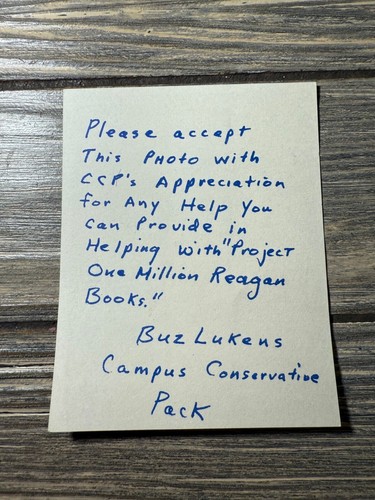 Please accept
This Photo with
CCP's Appreciation
for Any Help You
Can Provide in
Helping with "Project
One Million Reagan
Books."
Buz Lukens
Campus Conservative
Pack